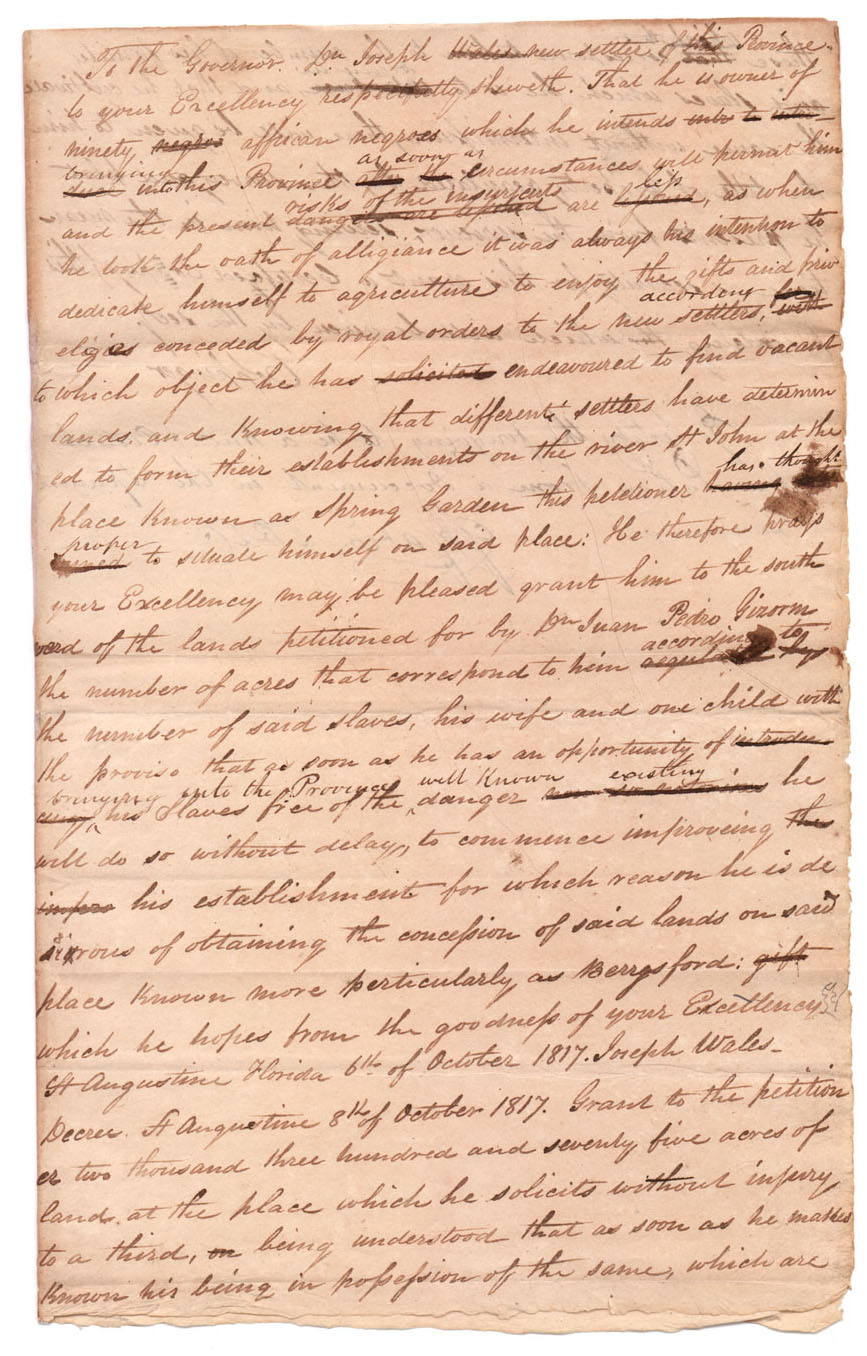 To the Governor. Dn Joseph Wales new settler of this Province
to your Excellency respectfully sheweth. That he is owner of
ninety negros affrican negroes which he intends
bringing into this Province as soon as circumstances will permit him
and the present risks of the insurgents are less, as when
he took the oath of alligiance it was always his intention to
dedicate himself to agriculture to enjoy the gifts and priv
eliges conceded by royal orders to the new settlers, according
to which object he has solicited endeavoured to find vacant
lands. and Knowing that different settlers have determin
ed to form their establishments on the river St John at the
place Known as Spring Garden this petetioner has thought
proper to situate himself on said place: He therefore prays
your Excellency may be pleased grant him to the south
ward of the lands petitioned for by Dn Juan Pedro Gizorm
the number of acres that correspond to him according to
the number of said slaves, his wife and one child with
the proviso that as soon as he has an opportunity of introduc
bringing his Slaves into the Province free of the well Known danger existing he
will do so without delay, to commence improveing the
impro his establishment for which reason he is de
sirous of obtaining the concession of said lands on said
place Known more perticularly as Berrysford: gift
which he hopes from the goodness of your Excellency
St Augustine Florida 6th of October 1817. Joseph Wales-
Decree. St Augustine 8th of October 1817. Grant to the petition
er two thousand three hundred and seventy five acres of
land. at the place which he solicits without injury
to a third, on being understood that as soon as he makes
Known his being in possession of the same, which are